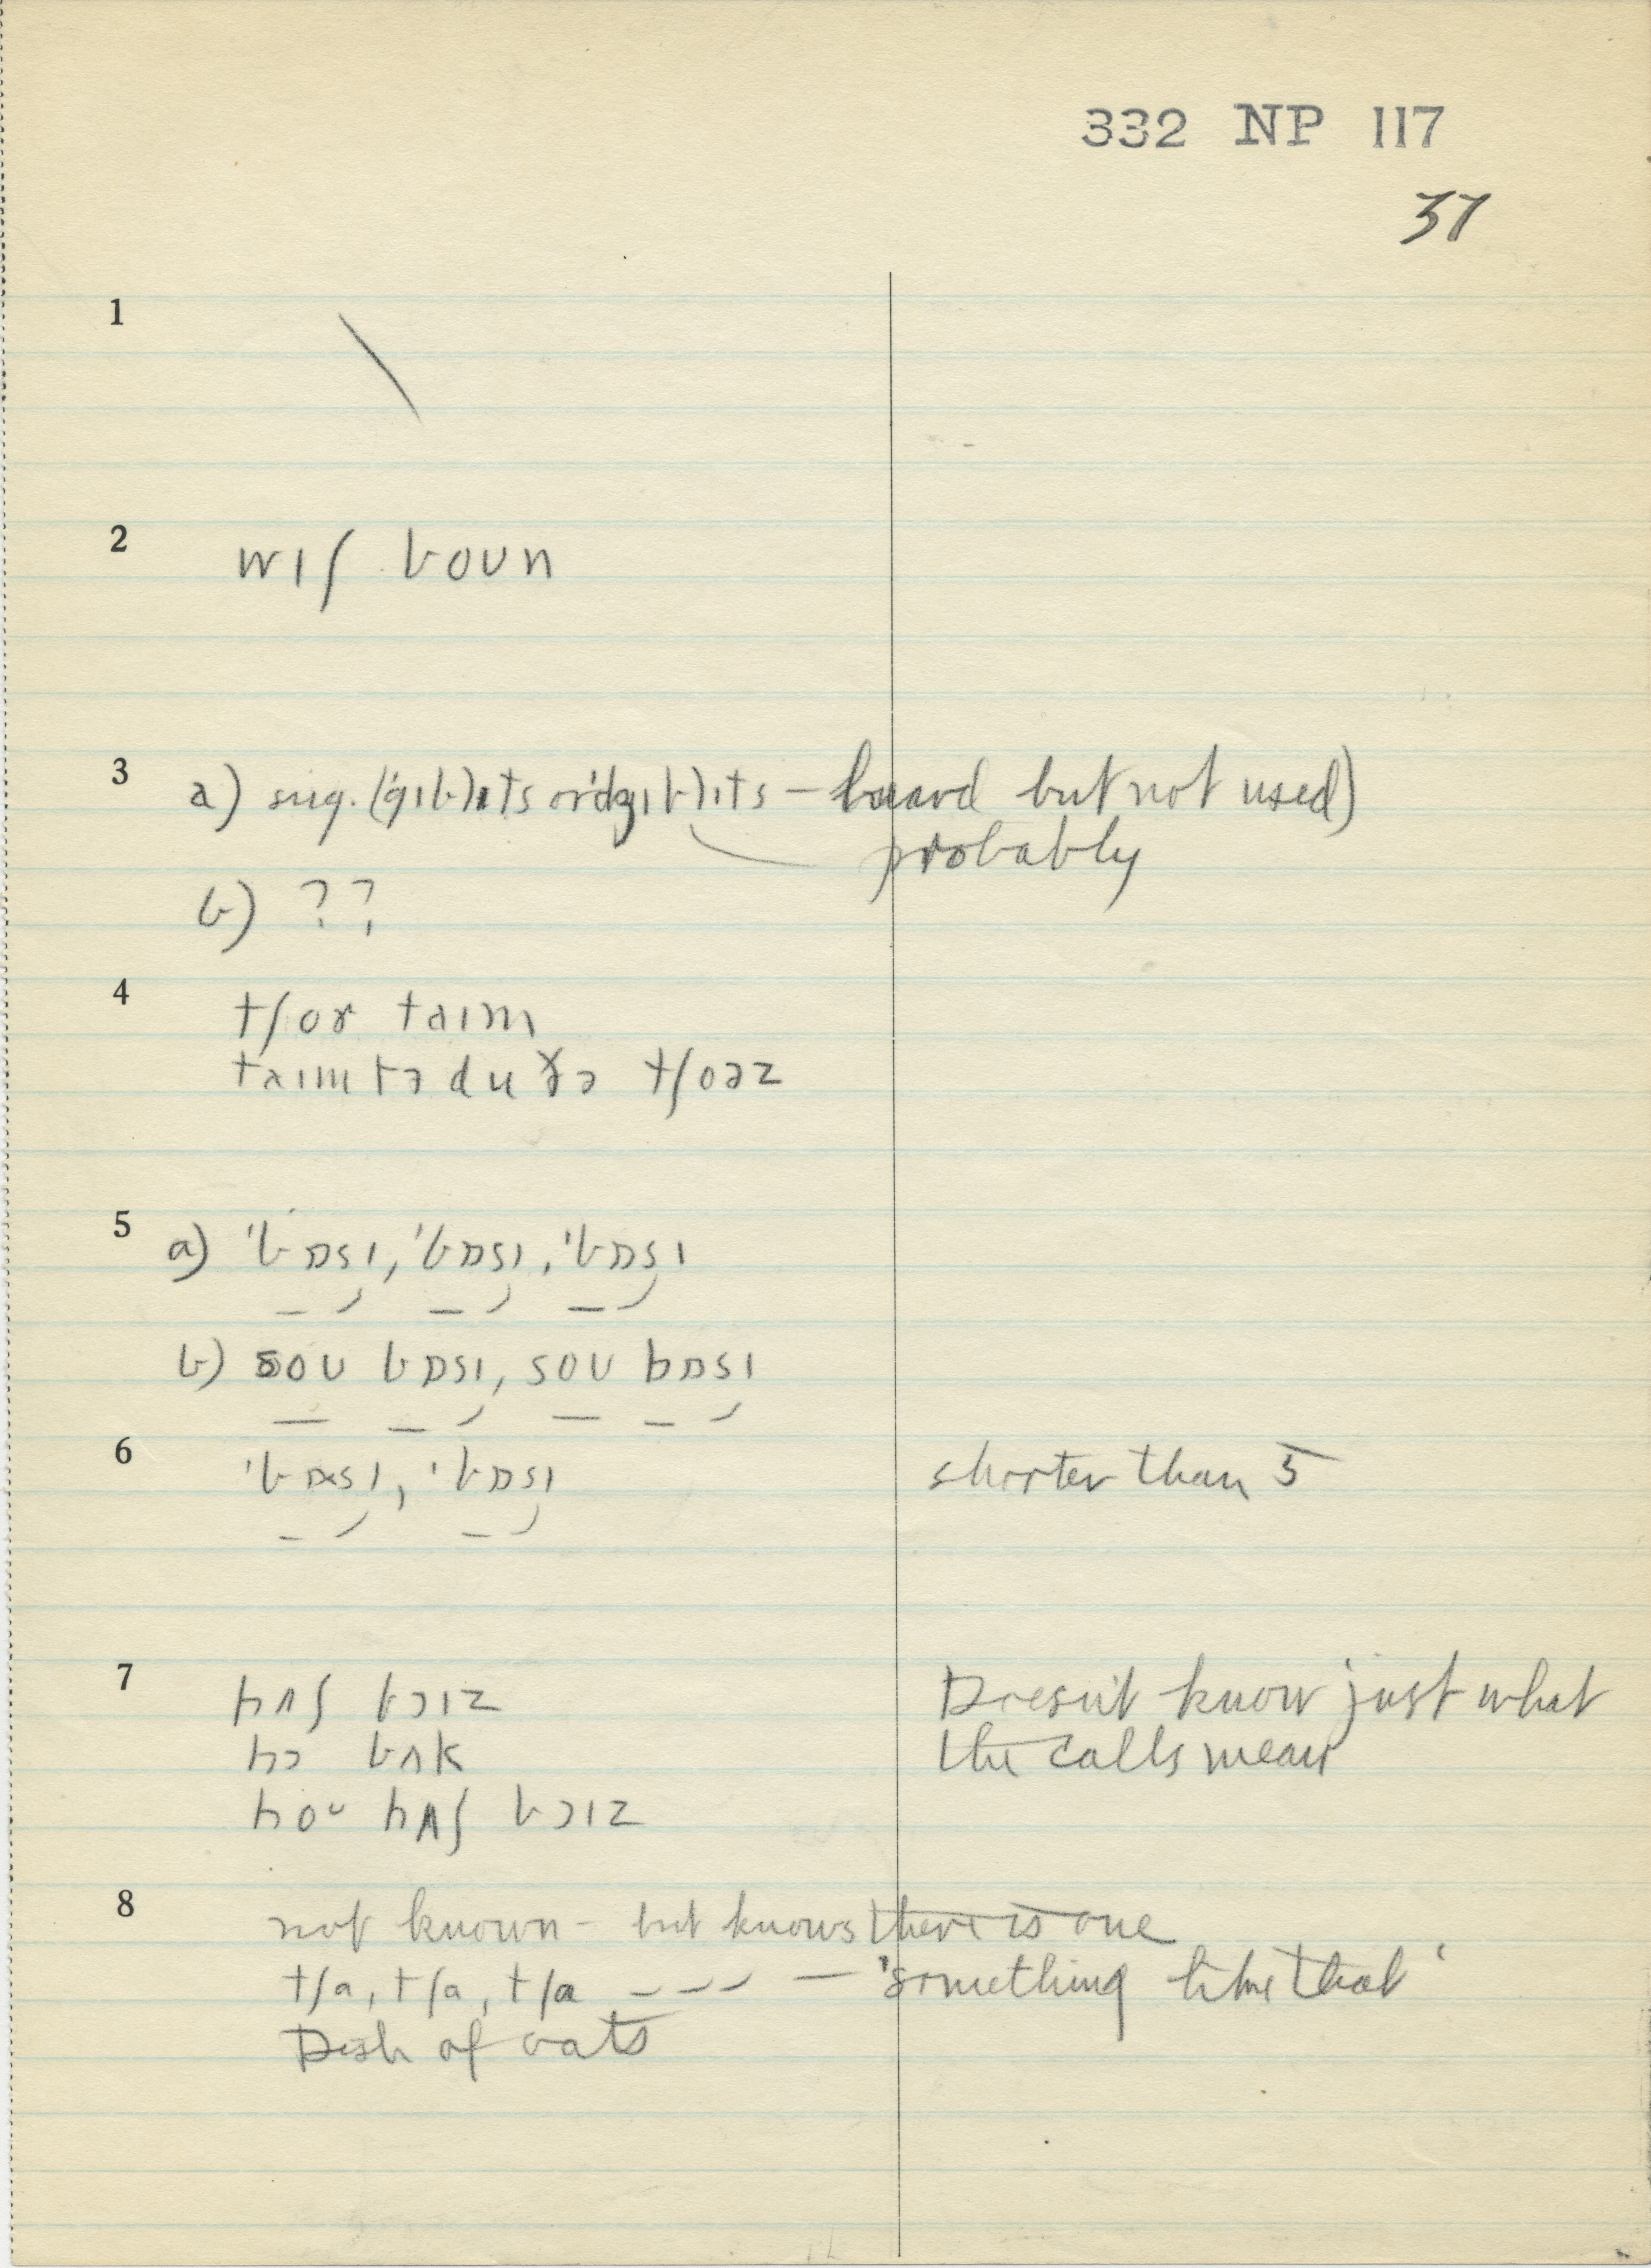 332 NP 117
37
1 \
2 wɪʃ boun
3 a) sug. (ˈgɪb)ɪts or ˈdʒɪb)ɪts – heard but not used)
probably
b) ??
4 tʃor taɪm
taɪm tə du ðə tʃoəz
5 a) ˈbɒsɪ, ˈbɒsɪ, ˈbɒsɪ
b) soʊ bɒsɪ, soʊ bɒsɪ
6 ˈbɒsɪ, ˈbɒsɪ shorter than 5
7 hʌʃ bɔɪz Doesn't know just what
hɔ bʌk the calls mean
hoʊ hʌʃ bɔɪz
8 not known – but knows there is one
tʃa, tʃa, tʃa – – – — 'something like that'
Dish of oats